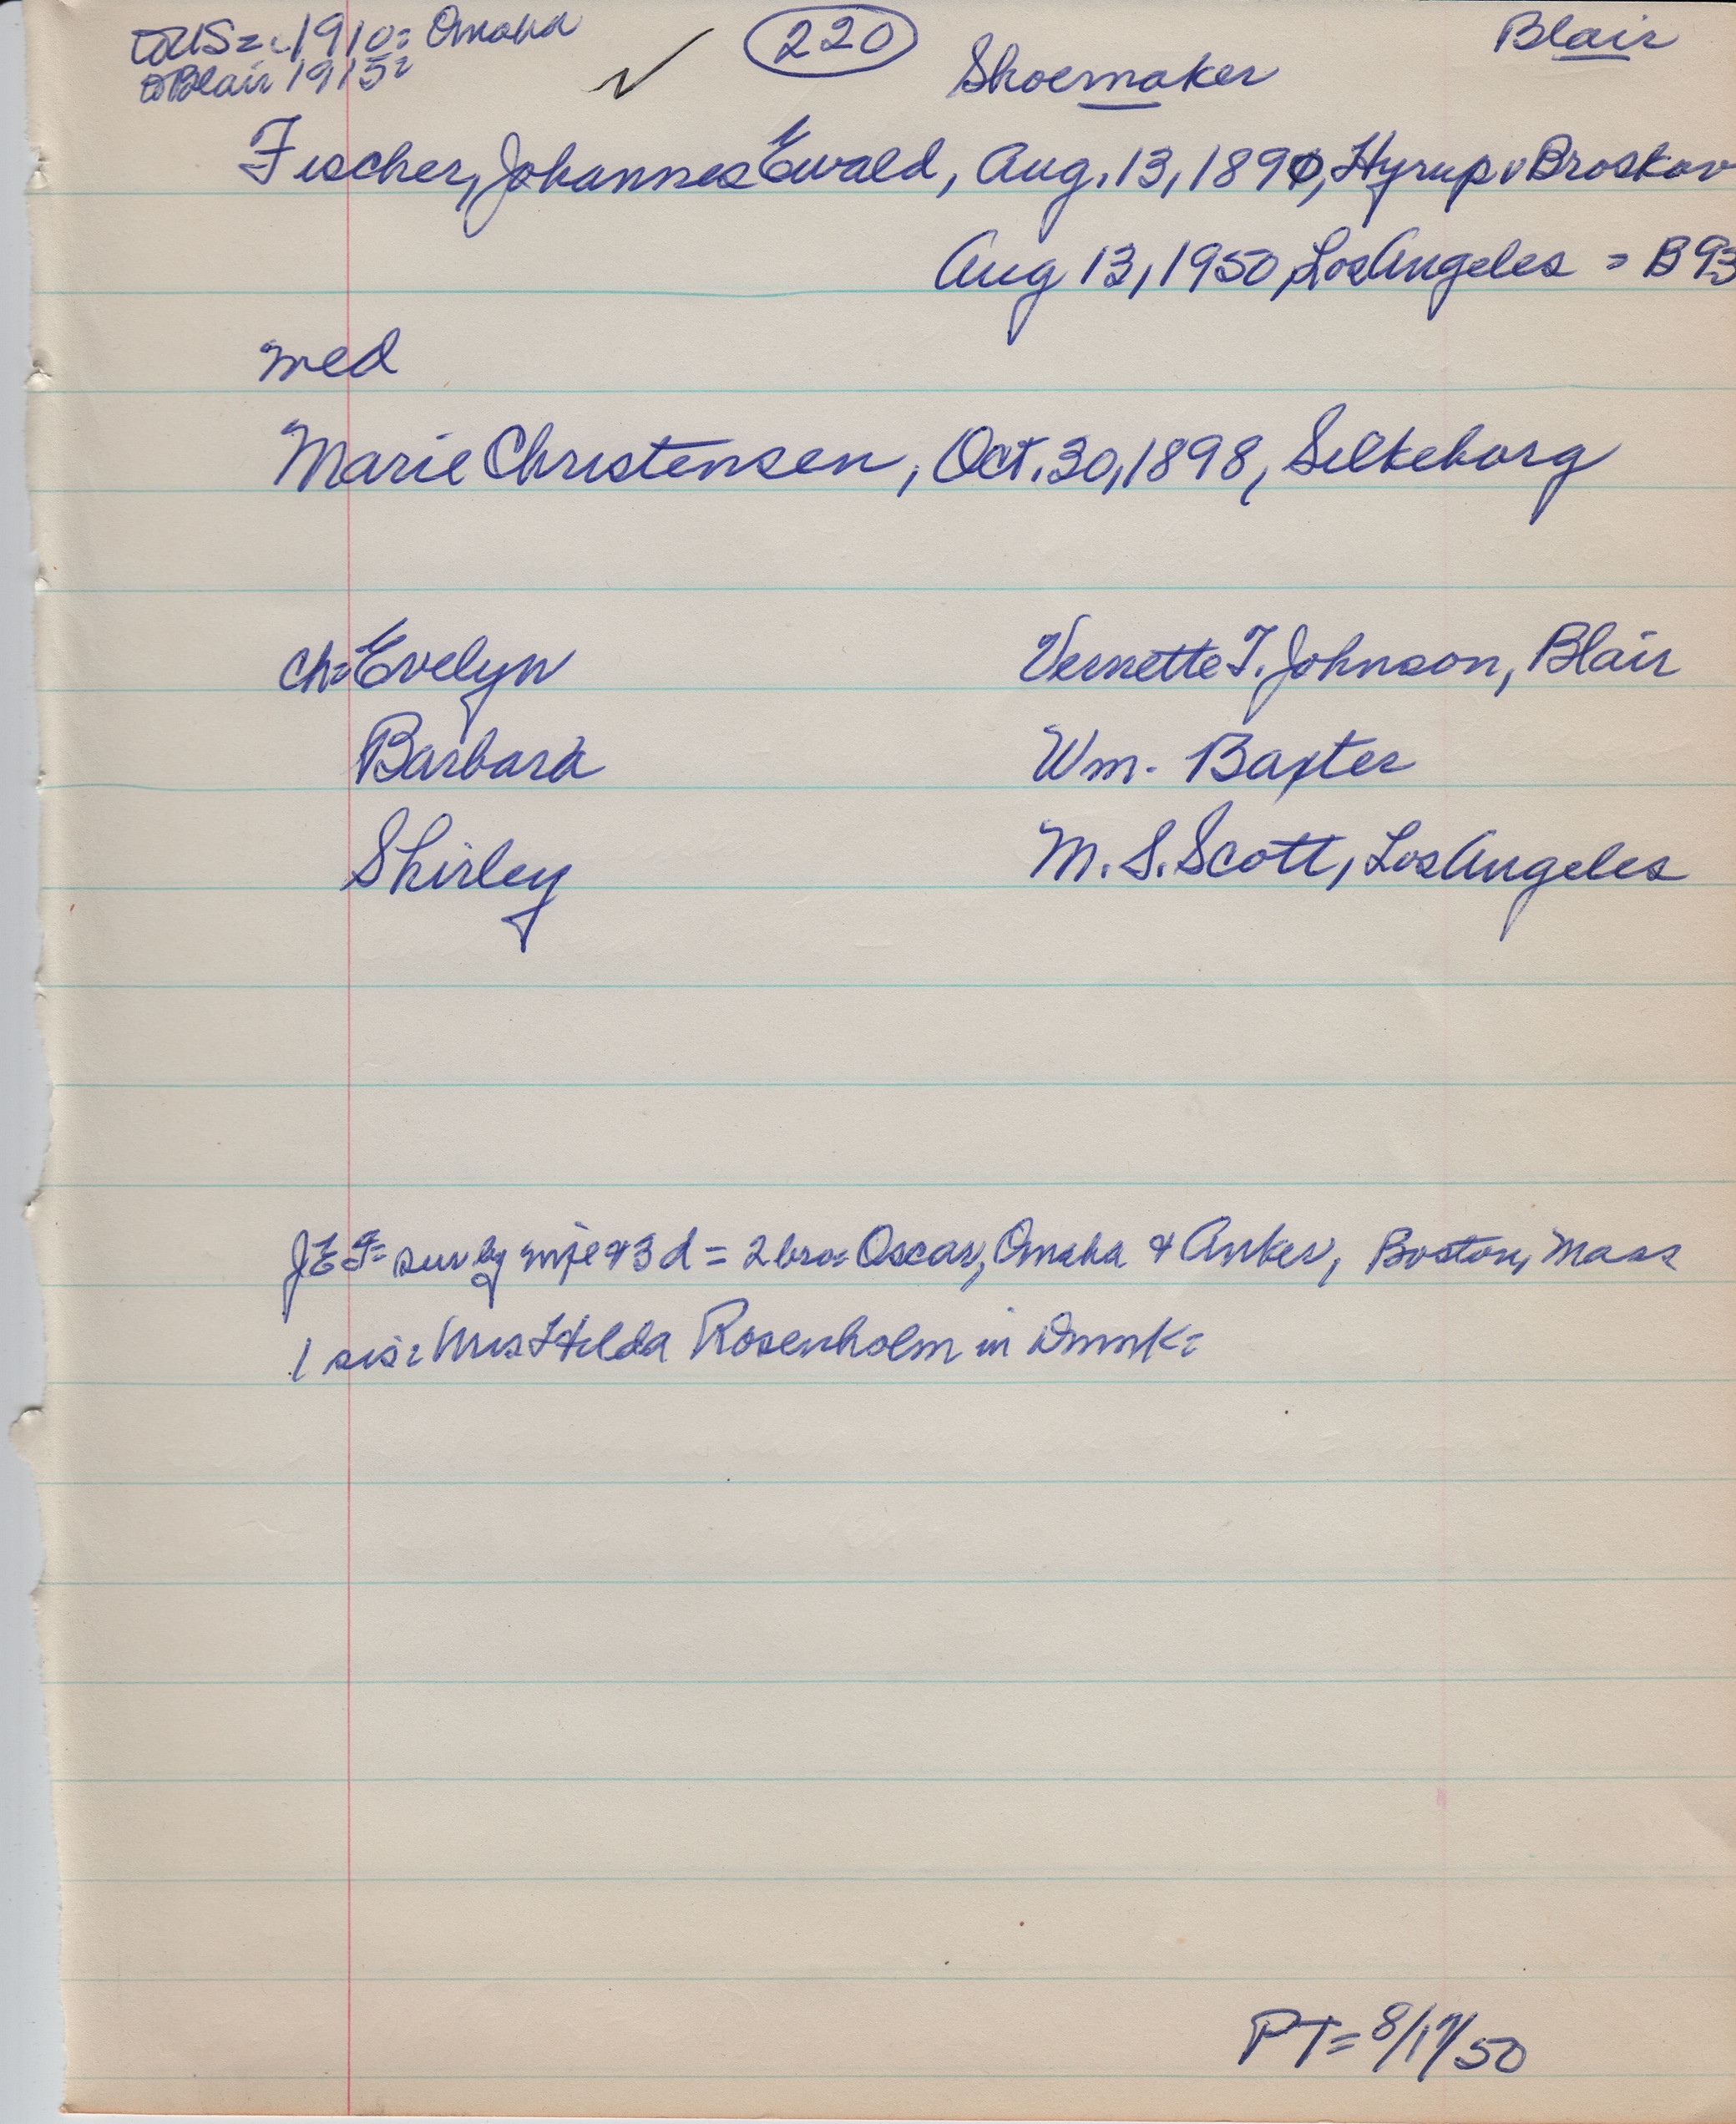 to US = 1910 = Omaha
to Blair 1915 =
220
Blair
Shoemaker
Fischer, Johannes Ewald, Aug. 13, 1890, Hyrup v Broskov
Aug 13, 1950, Los Angeles = B93
med
Marie Christensen, Oct. 30, 1898, Silkeborg
ch = Evelyn Vernette T. Johnson, Blair
Barbara Wm. Baxter
Shirley M. S. Scott, Los Angeles
JEF = sur by wife & 3 d = 2 bro = Oscar, Omaha & Anker, Boston, Mass
1 sis = Mrs Hilda Rosenholm in Dnmk =
PT = 8/17/50